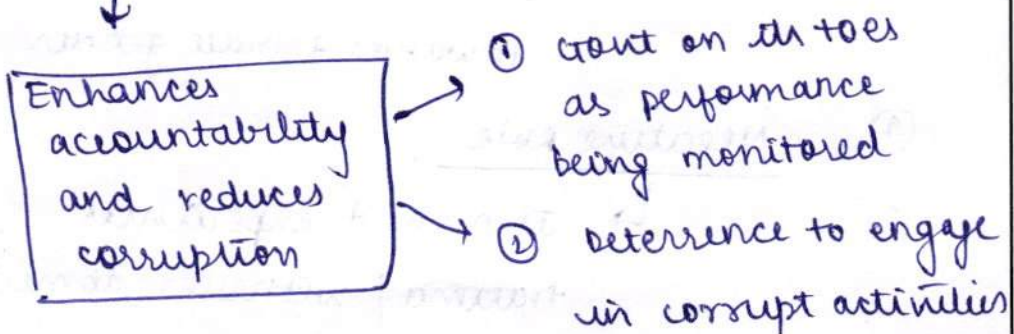 Enhances
accountability
and reduces
corruption
① Govt on its toes
as performance
being monitored
② Deterrence to engage
in corrupt activities